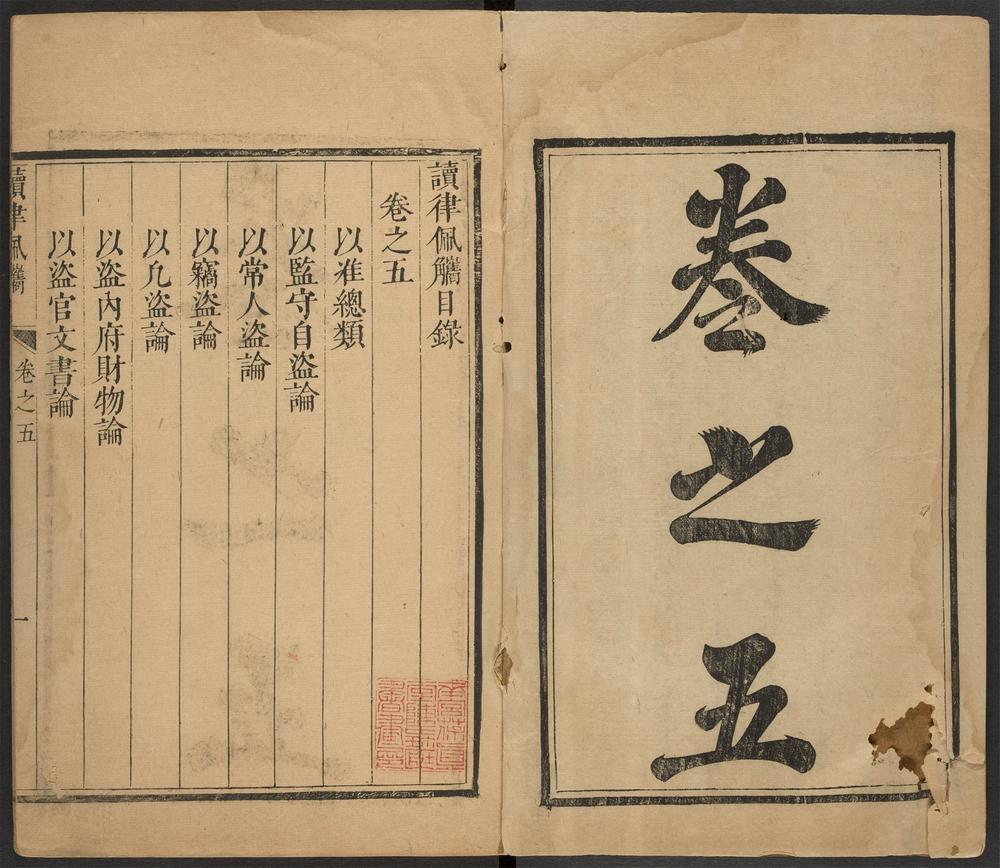 卷之五
讀律佩觿目錄
卷之五
以准總類
以監守自盜論
以常人盜論
以竊盜論
以凢盜論
以盜內府財物論
以盜官文書論
讀律佩觿
卷之五
一